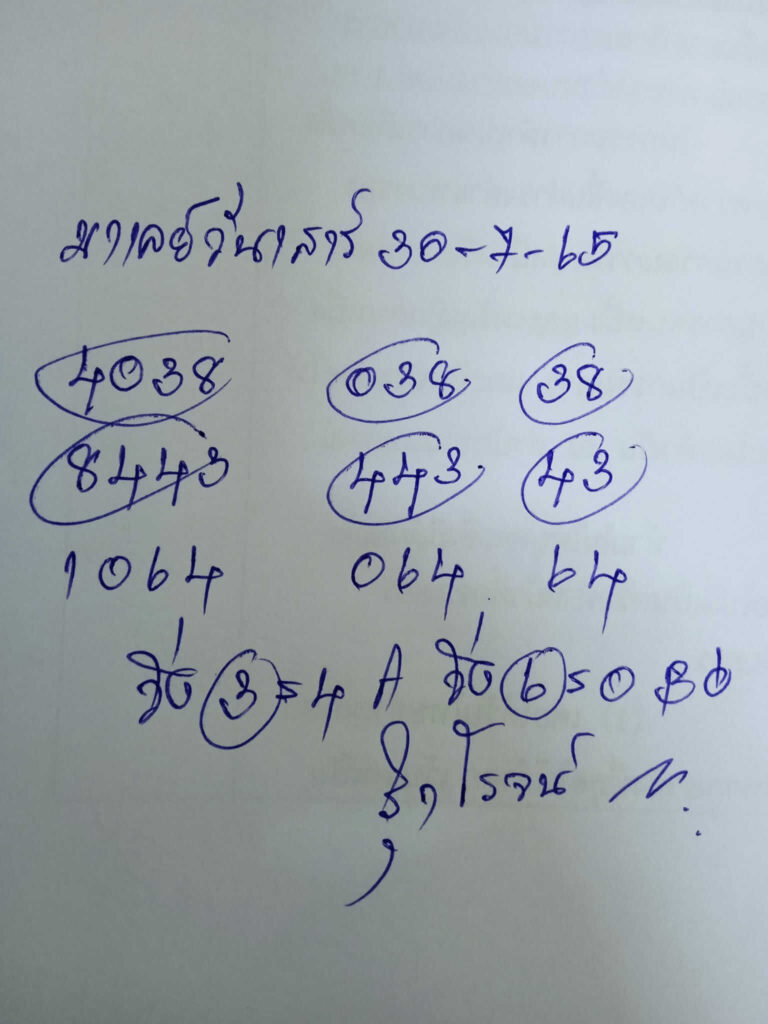 มาเลย์วันเสาร์ 30-7-65
4038 038 38
8443 443 43
1064 064 64
วิ่ง 3=4 A วิ่ง 6=0
โรจน์